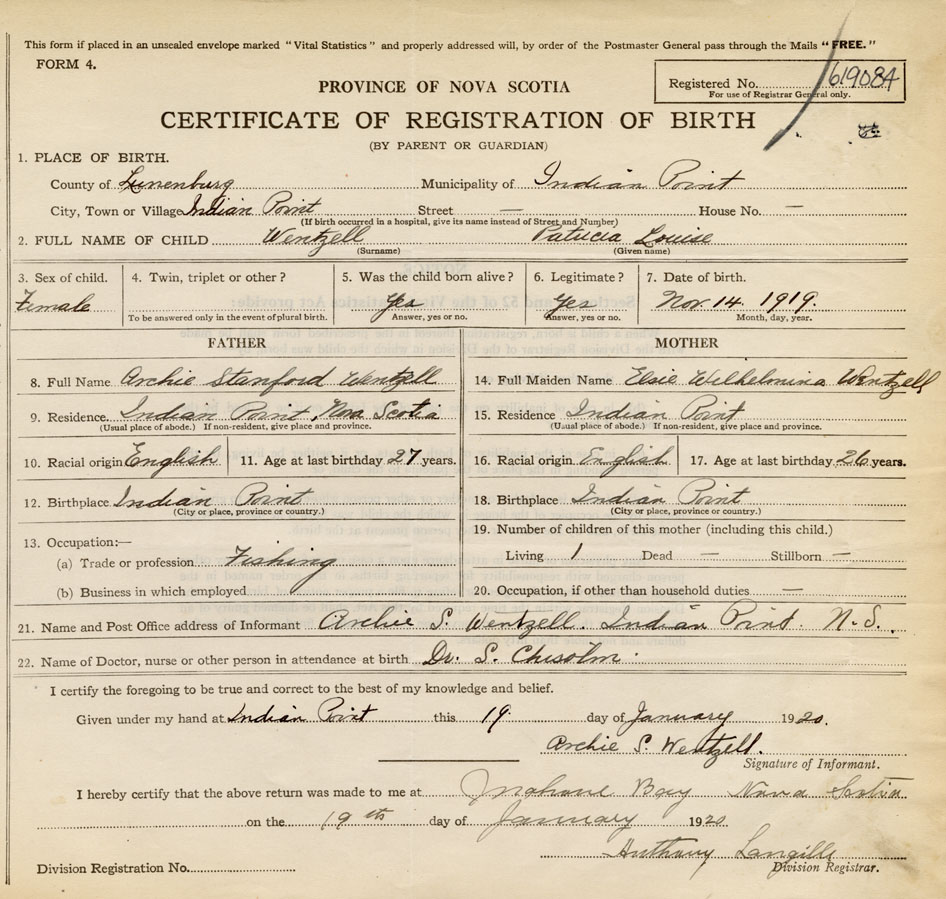 This form if placed in an unsealed envelope marked "Vital Statistics" and properly addressed will, by order of the Postmaster General pass through the Mails "FREE."
FORM 4.
Registered No. 619084
For use of Registrar General only.
PROVINCE OF NOVA SCOTIA
CERTIFICATE OF REGISTRATION OF BIRTH
(BY PARENT OR GUARDIAN)
1. PLACE OF BIRTH.
County of Lunenburg Municipality of Indian Point
City, Town or Village Indian Point Street — House No. —
(If birth occurred in a hospital, give its name instead of Street and Number)
2. FULL NAME OF CHILD Wentzell Patricia Louise
(Surname) (Given name)
3. Sex of child. 4. Twin, triplet or other? 5. Was the child born alive? 6. Legitimate? 7. Date of birth.
Female Yes Yes Nov. 14. 1919.
To be answered only in the event of plural birth. Answer, yes or no. Answer, yes or no. Month, day, year.
FATHER MOTHER
8. Full Name Archie Stanford Wentzell 14. Full Maiden Name Elsie Wilhelmina Wentzell
9. Residence Indian Point, Nova Scotia 15. Residence Indian Point
(Usual place of abode.) If non-resident, give place and province. (Usual place of abode.) If non-resident, give place and province.
10. Racial origin English 11. Age at last birthday 27 years. 16. Racial origin English 17. Age at last birthday 26 years.
12. Birthplace Indian Point 18. Birthplace Indian Point
(City or place, province or country.) (City or place, province or country.)
19. Number of children of this mother (including this child.)
13. Occupation:—
(a) Trade or profession Fishing Living 1 Dead — Stillborn —
(b) Business in which employed 20. Occupation, if other than household duties —
21. Name and Post Office address of Informant Archie S. Wentzell. Indian Point. N.S.
22. Name of Doctor, nurse or other person in attendance at birth Dr. S. Chisolm.
I certify the foregoing to be true and correct to the best of my knowledge and belief.
Given under my hand at Indian Point this 19. day of January 1920.
Archie S. Wentzell.
Signature of Informant.
I hereby certify that the above return was made to me at Mahone Bay Nova Scotia
on the 19th day of January 1920
Anthony Langille
Division Registrar.
Division Registration No.